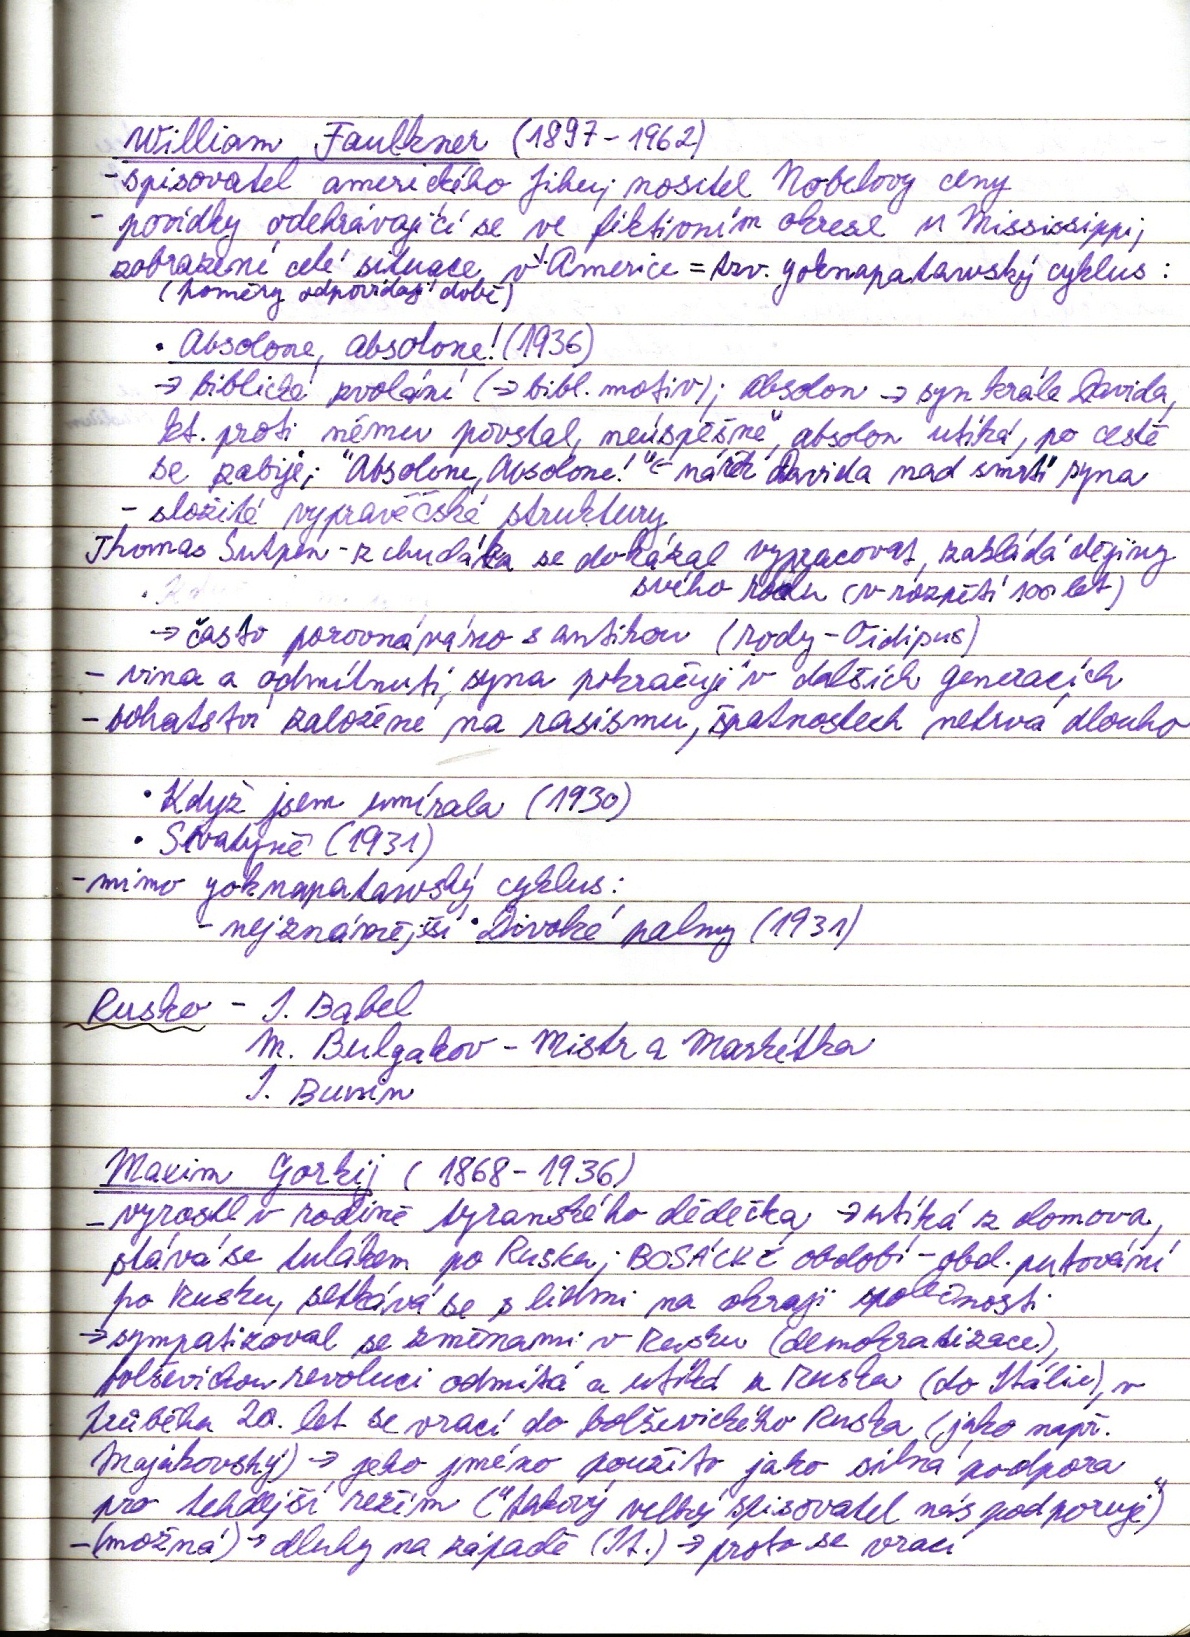 William Faulkner (1897-1962)
- spisovatel amerického Jihu; nositel Nobelovy ceny
- povídky odehrávající se ve fiktivním okrese v Mississippi;
zobrazení celé situace v Americe = tzv. yoknapatawský cyklus:
(poměry odpovídají době)
• Absolone, absolone! (1936)
→ biblické zvolání (→ bibl. motiv); Absolon → syn krále Davida,
kt. proti němu povstal, neúspěšně, absolon utíká, po cestě
se zabije; "Absolone, Absolone!" ← nářek Davida nad smrtí syna
- složité vypravěčské struktury
Thomas Sutpen - z chudáka se dokázal vypracovat, zakládá dějiny
svého rodu (v rozpětí 100 let)
→ často porovnáváno s antikou (rody - Oidipus)
- vina a odmítnutí syna pokračují v dalších generacích
- bohatství založené na rasismu, špatnostech netrvá dlouho
• Když jsem umírala (1930)
• Svatyně (1931)
- mimo yoknapatawský cyklus:
- nejznámější • Divoké palmy (1931)
Rusko - I. Babel
M. Bulgakov - Mistr a Markétka
I. Bunin
Maxim Gorkij (1868-1936)
- vyrostl v rodině tyranského dědečka → utíká z domova,
stává se tulákem po Rusku; BOSÁCKÉ období - obd. putování
po Rusku, setkává se s lidmi na okraji společnosti
→ sympatizoval se změnami v Rusku (demokratizace),
bolševickou revoluci odmítá a utíká z Ruska (do Itálie), v
průběhu 20. let se vrací do bolševického Ruska (jako např.
Majakovský) → jeho jméno použito jako silná podpora
pro tehdejší režim ("takový velký spisovatel nás podporuje")
- (možná) → dluhy na západě (It.) → proto se vrací